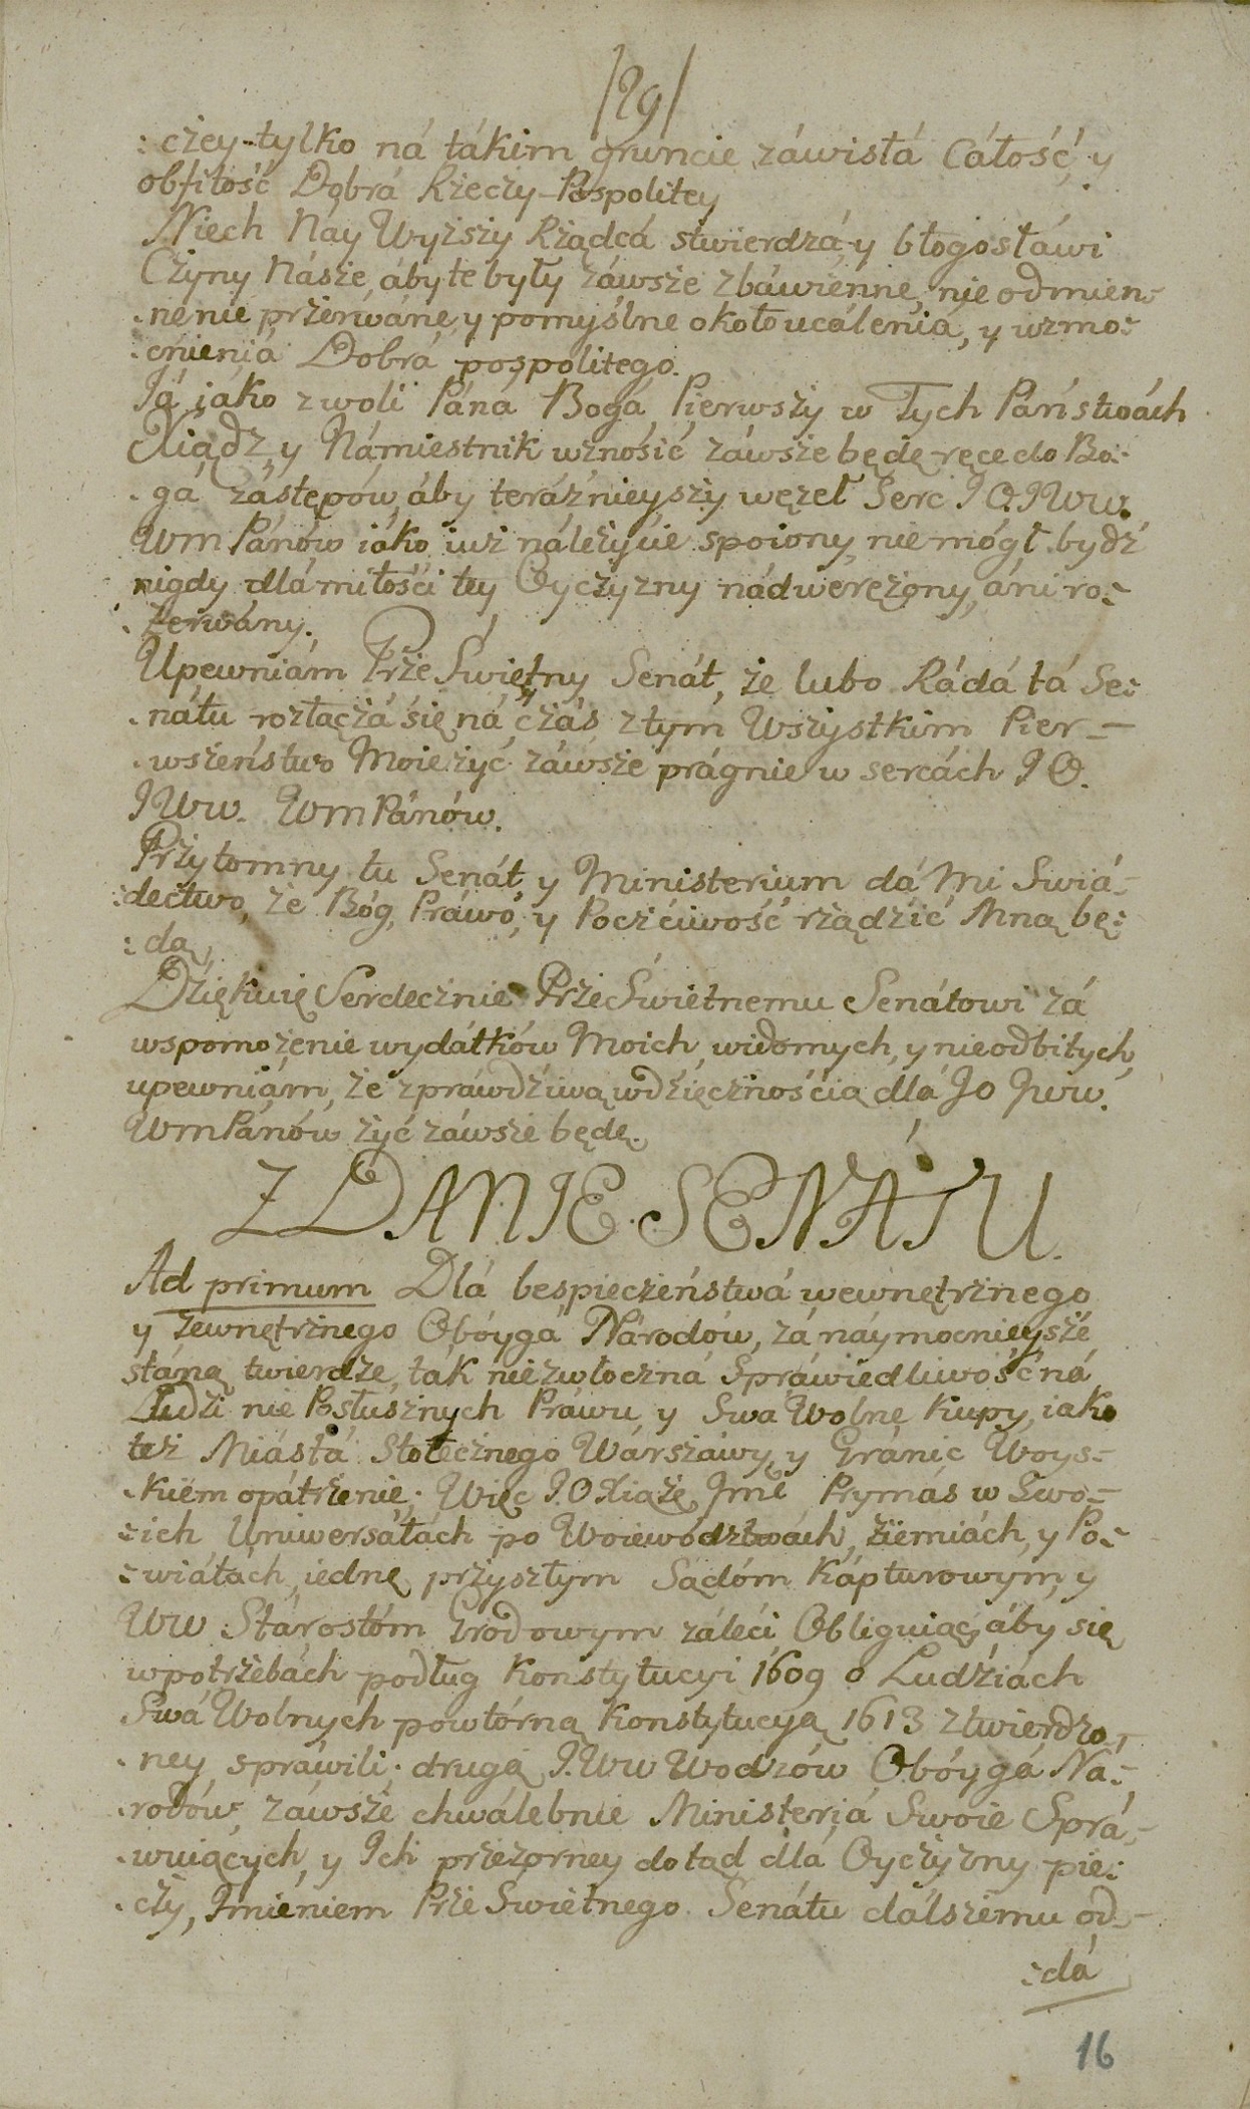 /29/
: czey-tylko ná tákim gruncie záwisłá Cáłość, y
obfitość Dobrá Rzeczy-Pospolitey
Niech Náy Wyższy Rządcá stwierdzá, y błogosłáwi
Czyny Násze, áby te były záwsze zbáwienne, nie odmien-
. ne nie przerwáne, y pomyślne około ucálenia, y wzmo:
: cnieniá Dobrá pospolitego.
Já jáko z woli Páná Bogá Pierwszy w Tych Páństwách
Xiądz, y Námiestnik wznośić záwsze będę ręce do Bo:
. gá Zástępów, áby teráźnieyszy węzeł Serc J O. J Ww.
Wm Pánów iáko iuż należycie spoiony, nie mógł bydź
nigdy dlá miłośći tey Oyczyzny nádwerężony, áni ro:
: zerwány.
Upewniám PrzeŚwiętny Senát, że lubo Rádá tá Se:
. nátu rozłączá się ná czás, z tym Wszystkim Pier -
. wszeństwo Moie żyć záwsze prágnie w sercách J O.
J Ww. WmPánów.
Przytomny tu Senát, y Ministerium dá Mi Swiá-
: dectwo, że Bóg, Práwo, y Poczćiwość rządzić Mną bę:
: dą,
Dziękuię Serdecznie PrzeŚwietnemu Senátowi zá
wspomożenie wydátków Moich, widomych, y nieodbitych,
upewniám, że z práwdźiwą wdźięcznośćią dlá Jo Jww.
WmPánów żyć záwsze będę.
ZDANIE SENÁTU.
Ad primum Dlá bespieczeństwá wewnętrznego
y zewnętrznego Obóygá Národów, zá náymocnieysze
stáną twierdze, ták niezwłoczná Spráwiedliwość ná
Ludźi nie Posłusznych Práwu, y Swa Wolne Kupy, iako
też Miástá Stołecznego Wárszáwy, y Gránic Woys-
. kiem opátrzenie; Więc J. O Xiążę Jmć Prymás w Swo-
: ich Uniwersáłách po Woiewództwách, ziemiách, y Po:
: wiátách, iednę przyszłym Sądóm Kápturowym, y
WW Stárostóm Grodowym záleći, Obliguiąc, áby się
w potrzebách podług Konstytucyi 1609 o Ludźiách
Swá Wolnych powtórną Konstytucyą 1613 ztwierdzo-
. ney spráwili; drugą J. Ww Wodzów Obóygá Ná-
. rodów, záwsze chwálebnie Ministeriá Swoie Sprá-
. wuiących, y Ich przezorney dotąd dlá Oyczyzny pie:
. czy, Jmieniem PrzeŚwietnego Senátu dálszemu od-
: dá
16